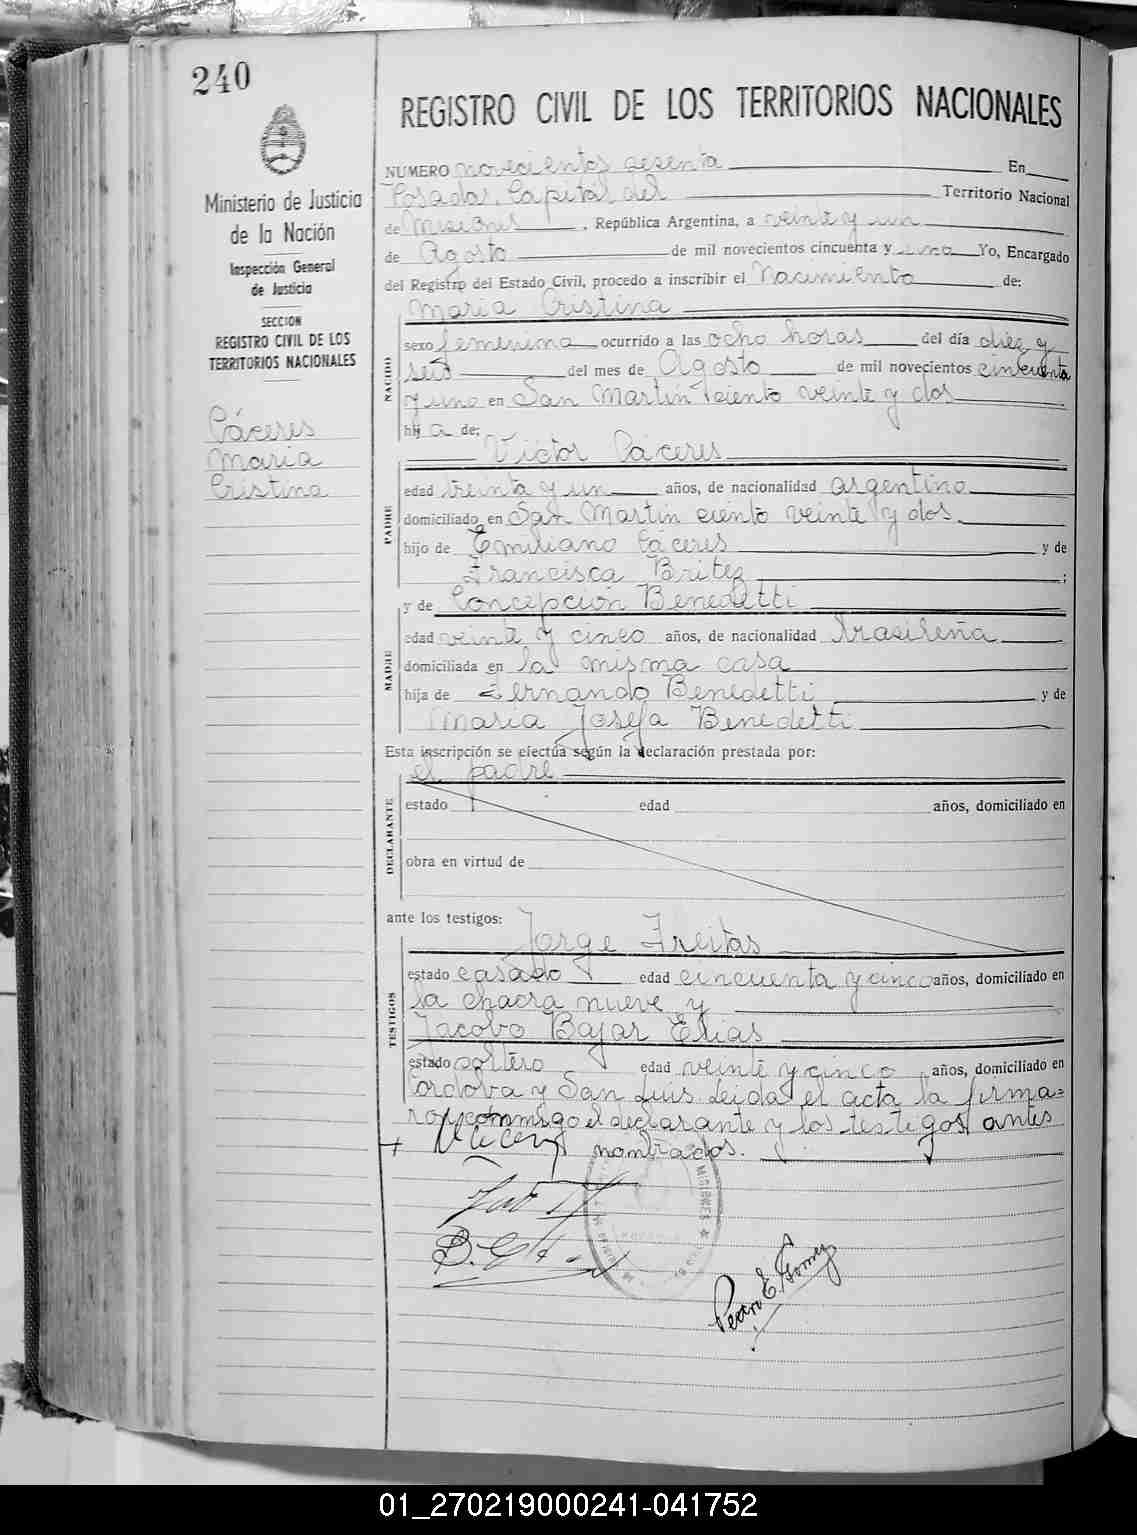 240
REGISTRO CIVIL DE LOS TERRITORIOS NACIONALES
Ministerio de Justicia
de la Nación
Inspección General
de Justicia
SECCION
REGISTRO CIVIL DE LOS
TERRITORIOS NACIONALES
Cáceres
Maria
Cristina
NUMERO novecientos sesenta En
Posadas, Capital del Territorio Nacional
de Misiones, República Argentina, a veinte y un
de Agosto de mil novecientos cincuenta y uno Yo, Encargado
del Registro del Estado Civil, procedo a inscribir el Nacimiento de:
Maria Cristina
NACIDO
sexo femenina ocurrido a las ocho horas del día diez y
seis del mes de Agosto de mil novecientos cincuenta
y uno en San Martin ciento veinte y dos
hija de:
Victor Cáceres
PADRE
edad treinta y un años, de nacionalidad argentino
domiciliado en San Martin ciento veinte y dos.
hijo de Emiliano Cáceres y de
Francisca Britez ;
y de Concepción Benedetti
MADRE
edad veinte y cinco años, de nacionalidad brasileña
domiciliada en la misma casa
hija de Fernando Benedetti y de
Maria Josefa Benedetti
Esta inscripción se efectúa según la declaración prestada por:
el padre
DECLARANTE
estado edad años, domiciliado en
obra en virtud de
ante los testigos:
Jorge Freitas
TESTIGOS
estado casado edad cincuenta y cinco años, domiciliado en
la chacra nueve y
Jacobo Bajar Elias
estado soltero edad veinte y cinco años, domiciliado en
Córdova y San Luis. Leida el acta la firma=
ron conmigo el declarante y los testigos antes
nombrados.
MISIONES
Pedro E. Gomez
01_270219000241-041752